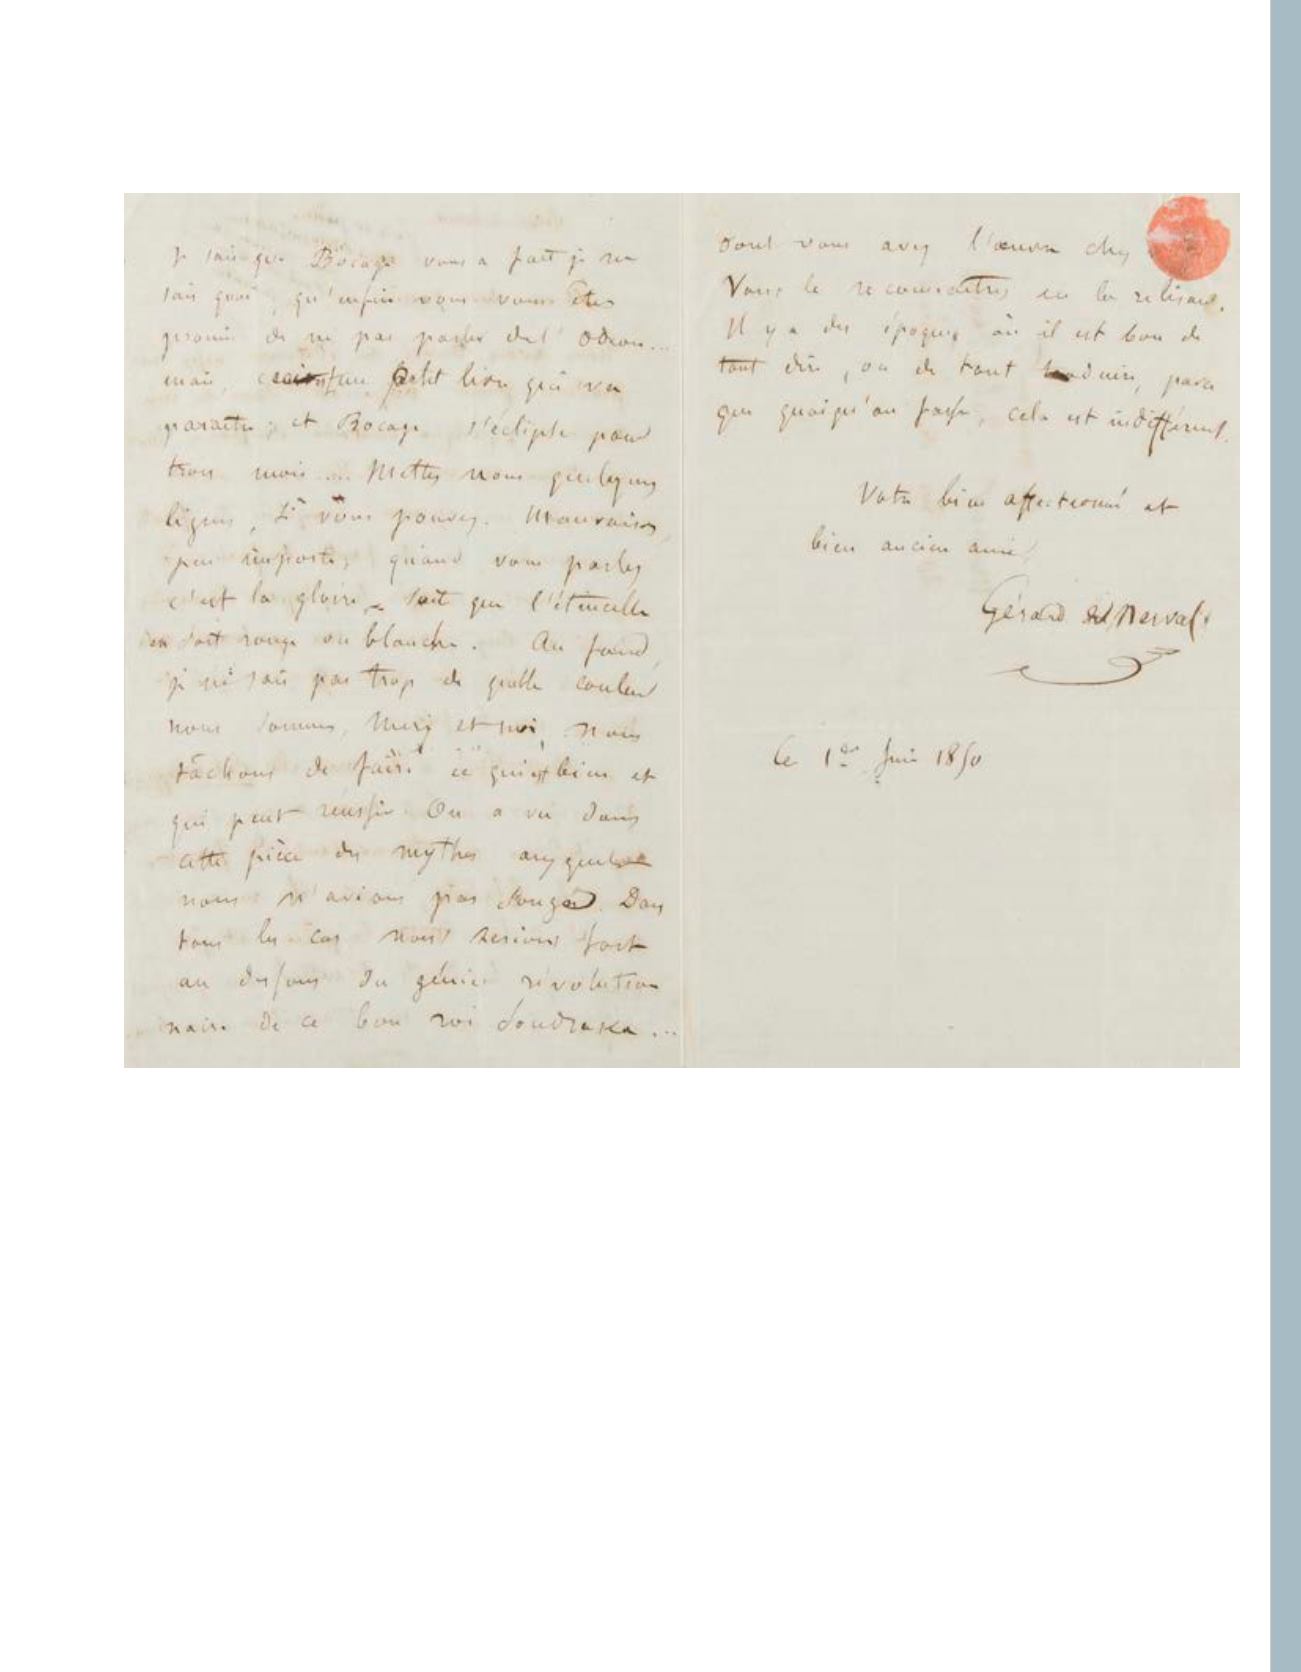 Je sais que Bocage vous a fait je ne
sais quoi, qu'enfin vous vous êtes
promis de ne pas parler de l'Odéon...
mais, ceci est un petit livre qui va
paraître; et Bocage s'éclipse pour
trois mois... Mettez nous quelques
lignes, si vous pouvez. Mauvaises,
peu importe; quand vous parlez
c'est la gloire — soit que l'étincelle
en soit rouge ou blanche. Au fond,
je ne sais pas trop de quelle couleur
nous sommes, Méry et moi, nous
tâchons de faire ce qui est bien et
qui peut réussir. On a vu dans
cette pièce des mythes auxquels
nous n'avions pas songé. Dans
tous les cas nous serions fort
au dessous du génie révolution
naire de ce bon roi Soudraka...
dont vous avez l'œuvre chez
Vous le reconnaîtrez en la relisant.
Il y a des époques où il est bon de
tout dire, ou de tout traduire, parce
que quoiqu'on fasse, cela est indifférent.
Votre bien affectionné et
bien ancien ami,
Gérard de Nerval
Ce 1er Juin 1850